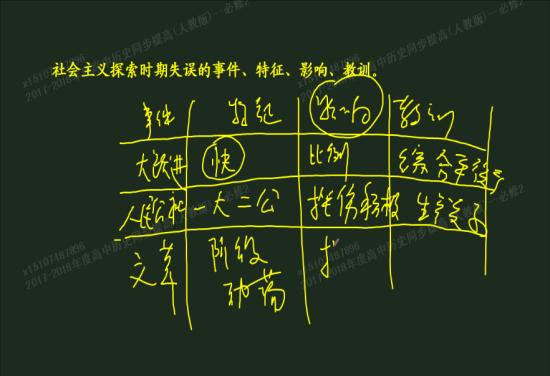 社会主义探索时期失误的事件、特征、影响、教训。
事件 特征 影响 教训
大跃进 快 比例 综合平衡
人民公社 一大二公 挫伤积极 生产关系
文革 阶级 扌
动荡
x15107487896
2017-2018年度高中历史同步提高(人教版)—必修2